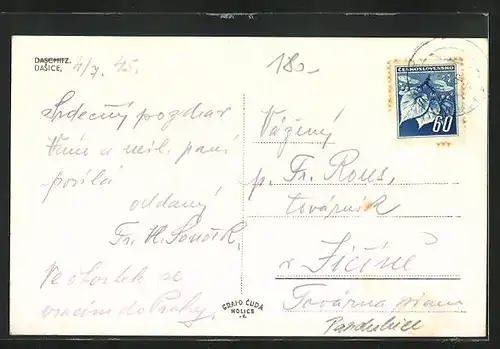 DASCHITZ.
DAŠICE,
4/7. 45.
180-
ČESKOSLOVENSKO
60
Srdečný pozdrav
Vám a mil. paní
posílá
oddaný
Fr. H. 
Ve čtvrtek se
vracím do Prahy.
GRAFO ČUDA
HOLICE
Vážený
p. Fr. Rous,
továrník
v Jičíně
Továrna pian
Pardubice